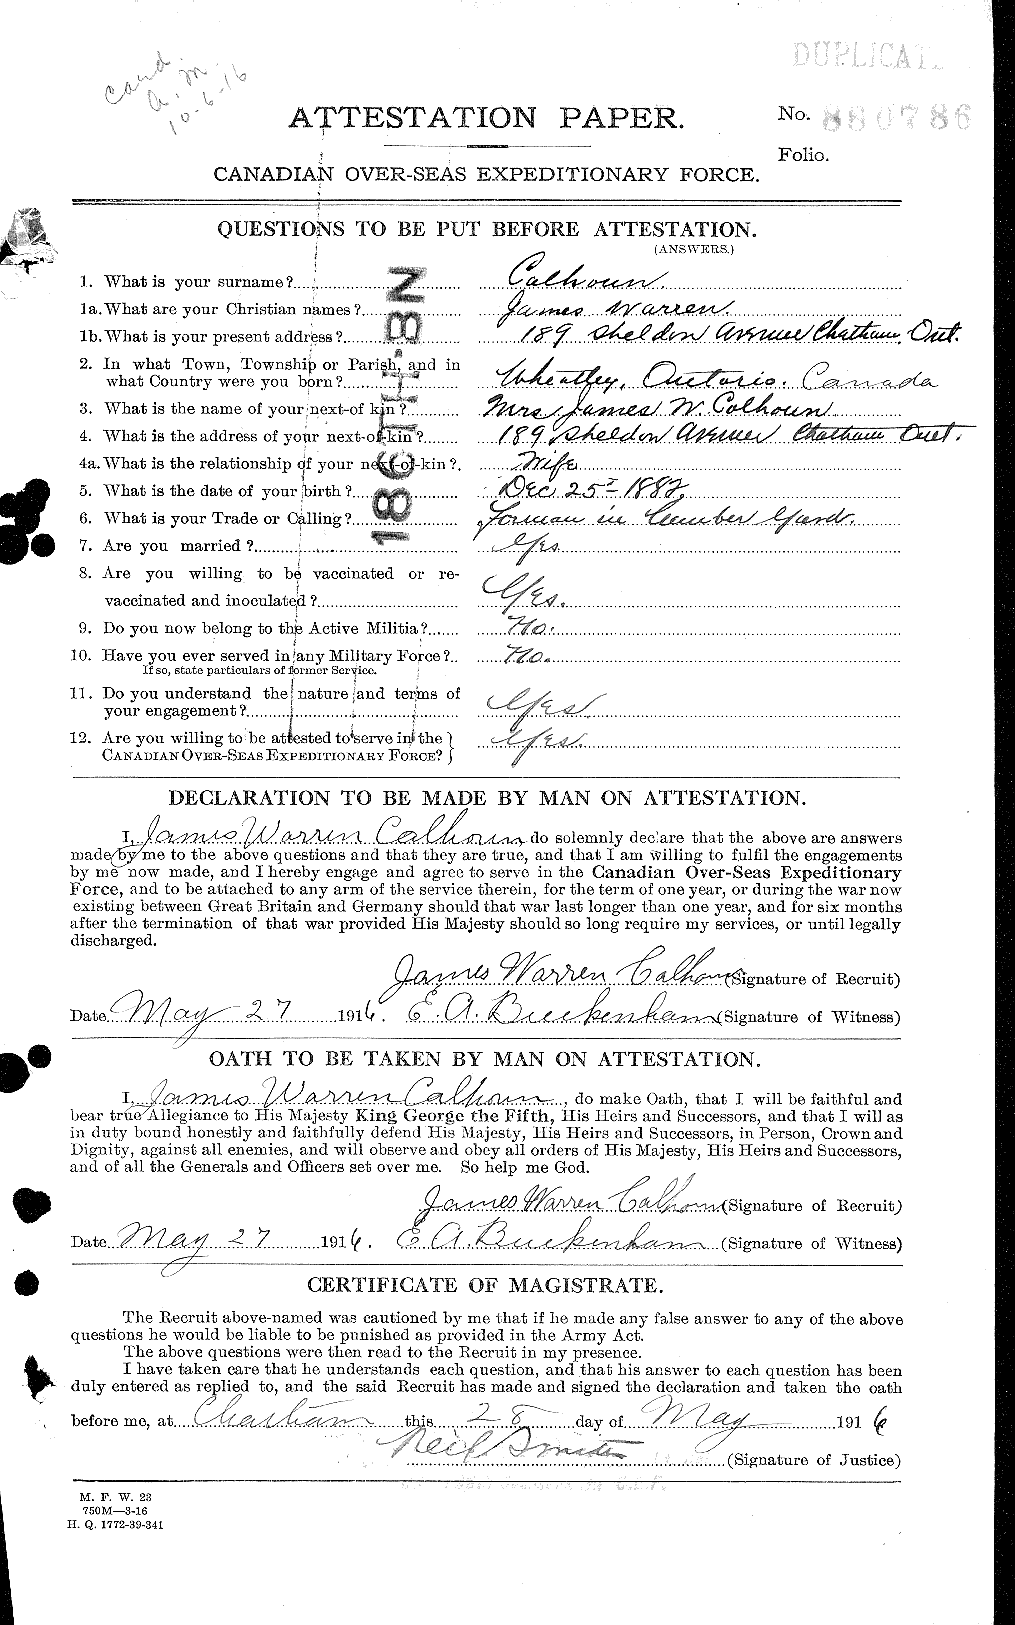 DUPLICAT
Card
a.m
10-6-16
ATTESTATION PAPER.
No. 880786
Folio.
CANADIAN OVER-SEAS EXPEDITIONARY FORCE.
QUESTIONS TO BE PUT BEFORE ATTESTATION.
(ANSWERS.)
186TH BN
1. What is your surname?.... Calhoun.
1a. What are your Christian names?.... James Warren.
1b. What is your present address?.... 189 Sheldon Avenue Chatham, Ont.
2. In what Town, Township or Parish, and in
what Country were you born?.... Wheatley, Ontario. Canada
3. What is the name of your next-of kin?.... Mrs James W. Calhoun
4. What is the address of your next-of-kin?.... 189 Sheldon Avenue Chatham Ont.
4a. What is the relationship of your next-of-kin?. Wife
5. What is the date of your birth?.... Dec 25 1882
6. What is your Trade or Calling?.... forman in lumber yard.
7. Are you married?.... Yes
8. Are you willing to be vaccinated or re-
vaccinated and inoculated?.... Yes.
9. Do you now belong to the Active Militia?.... No.
10. Have you ever served in any Military Force?.. No.
If so, state particulars of former Service.
11. Do you understand the nature and terms of
your engagement?.... Yes.
12. Are you willing to be attested to serve in the
CANADIAN OVER-SEAS EXPEDITIONARY FORCE? } Yes.
DECLARATION TO BE MADE BY MAN ON ATTESTATION.
I, James Warren Calhoun do solemnly declare that the above are answers
made by me to the above questions and that they are true, and that I am willing to fulfil the engagements
by me now made, and I hereby engage and agree to serve in the Canadian Over-Seas Expeditionary
Force, and to be attached to any arm of the service therein, for the term of one year, or during the war now
existing between Great Britain and Germany should that war last longer than one year, and for six months
after the termination of that war provided His Majesty should so long require my services, or until legally
discharged.
James Warren Calhoun (Signature of Recruit)
Date May 27 1916. E. A. Buckenham (Signature of Witness)
OATH TO BE TAKEN BY MAN ON ATTESTATION.
I, James Warren Calhoun, do make Oath, that I will be faithful and
bear true Allegiance to His Majesty King George the Fifth, His Heirs and Successors, and that I will as
in duty bound honestly and faithfully defend His Majesty, His Heirs and Successors, in Person, Crown and
Dignity, against all enemies, and will observe and obey all orders of His Majesty, His Heirs and Successors,
and of all the Generals and Officers set over me. So help me God.
James Warren Calhoun (Signature of Recruit)
Date May 27 1916. E. A. Buckenham (Signature of Witness)
CERTIFICATE OF MAGISTRATE.
The Recruit above-named was cautioned by me that if he made any false answer to any of the above
questions he would be liable to be punished as provided in the Army Act.
The above questions were then read to the Recruit in my presence.
I have taken care that he understands each question, and that his answer to each question has been
duly entered as replied to, and the said Recruit has made and signed the declaration and taken the oath
before me, at Chatham this 28 day of May 1916
Neil Smith (Signature of Justice)
M. F. W. 23
750M—3-16
H. Q. 1772-39-341